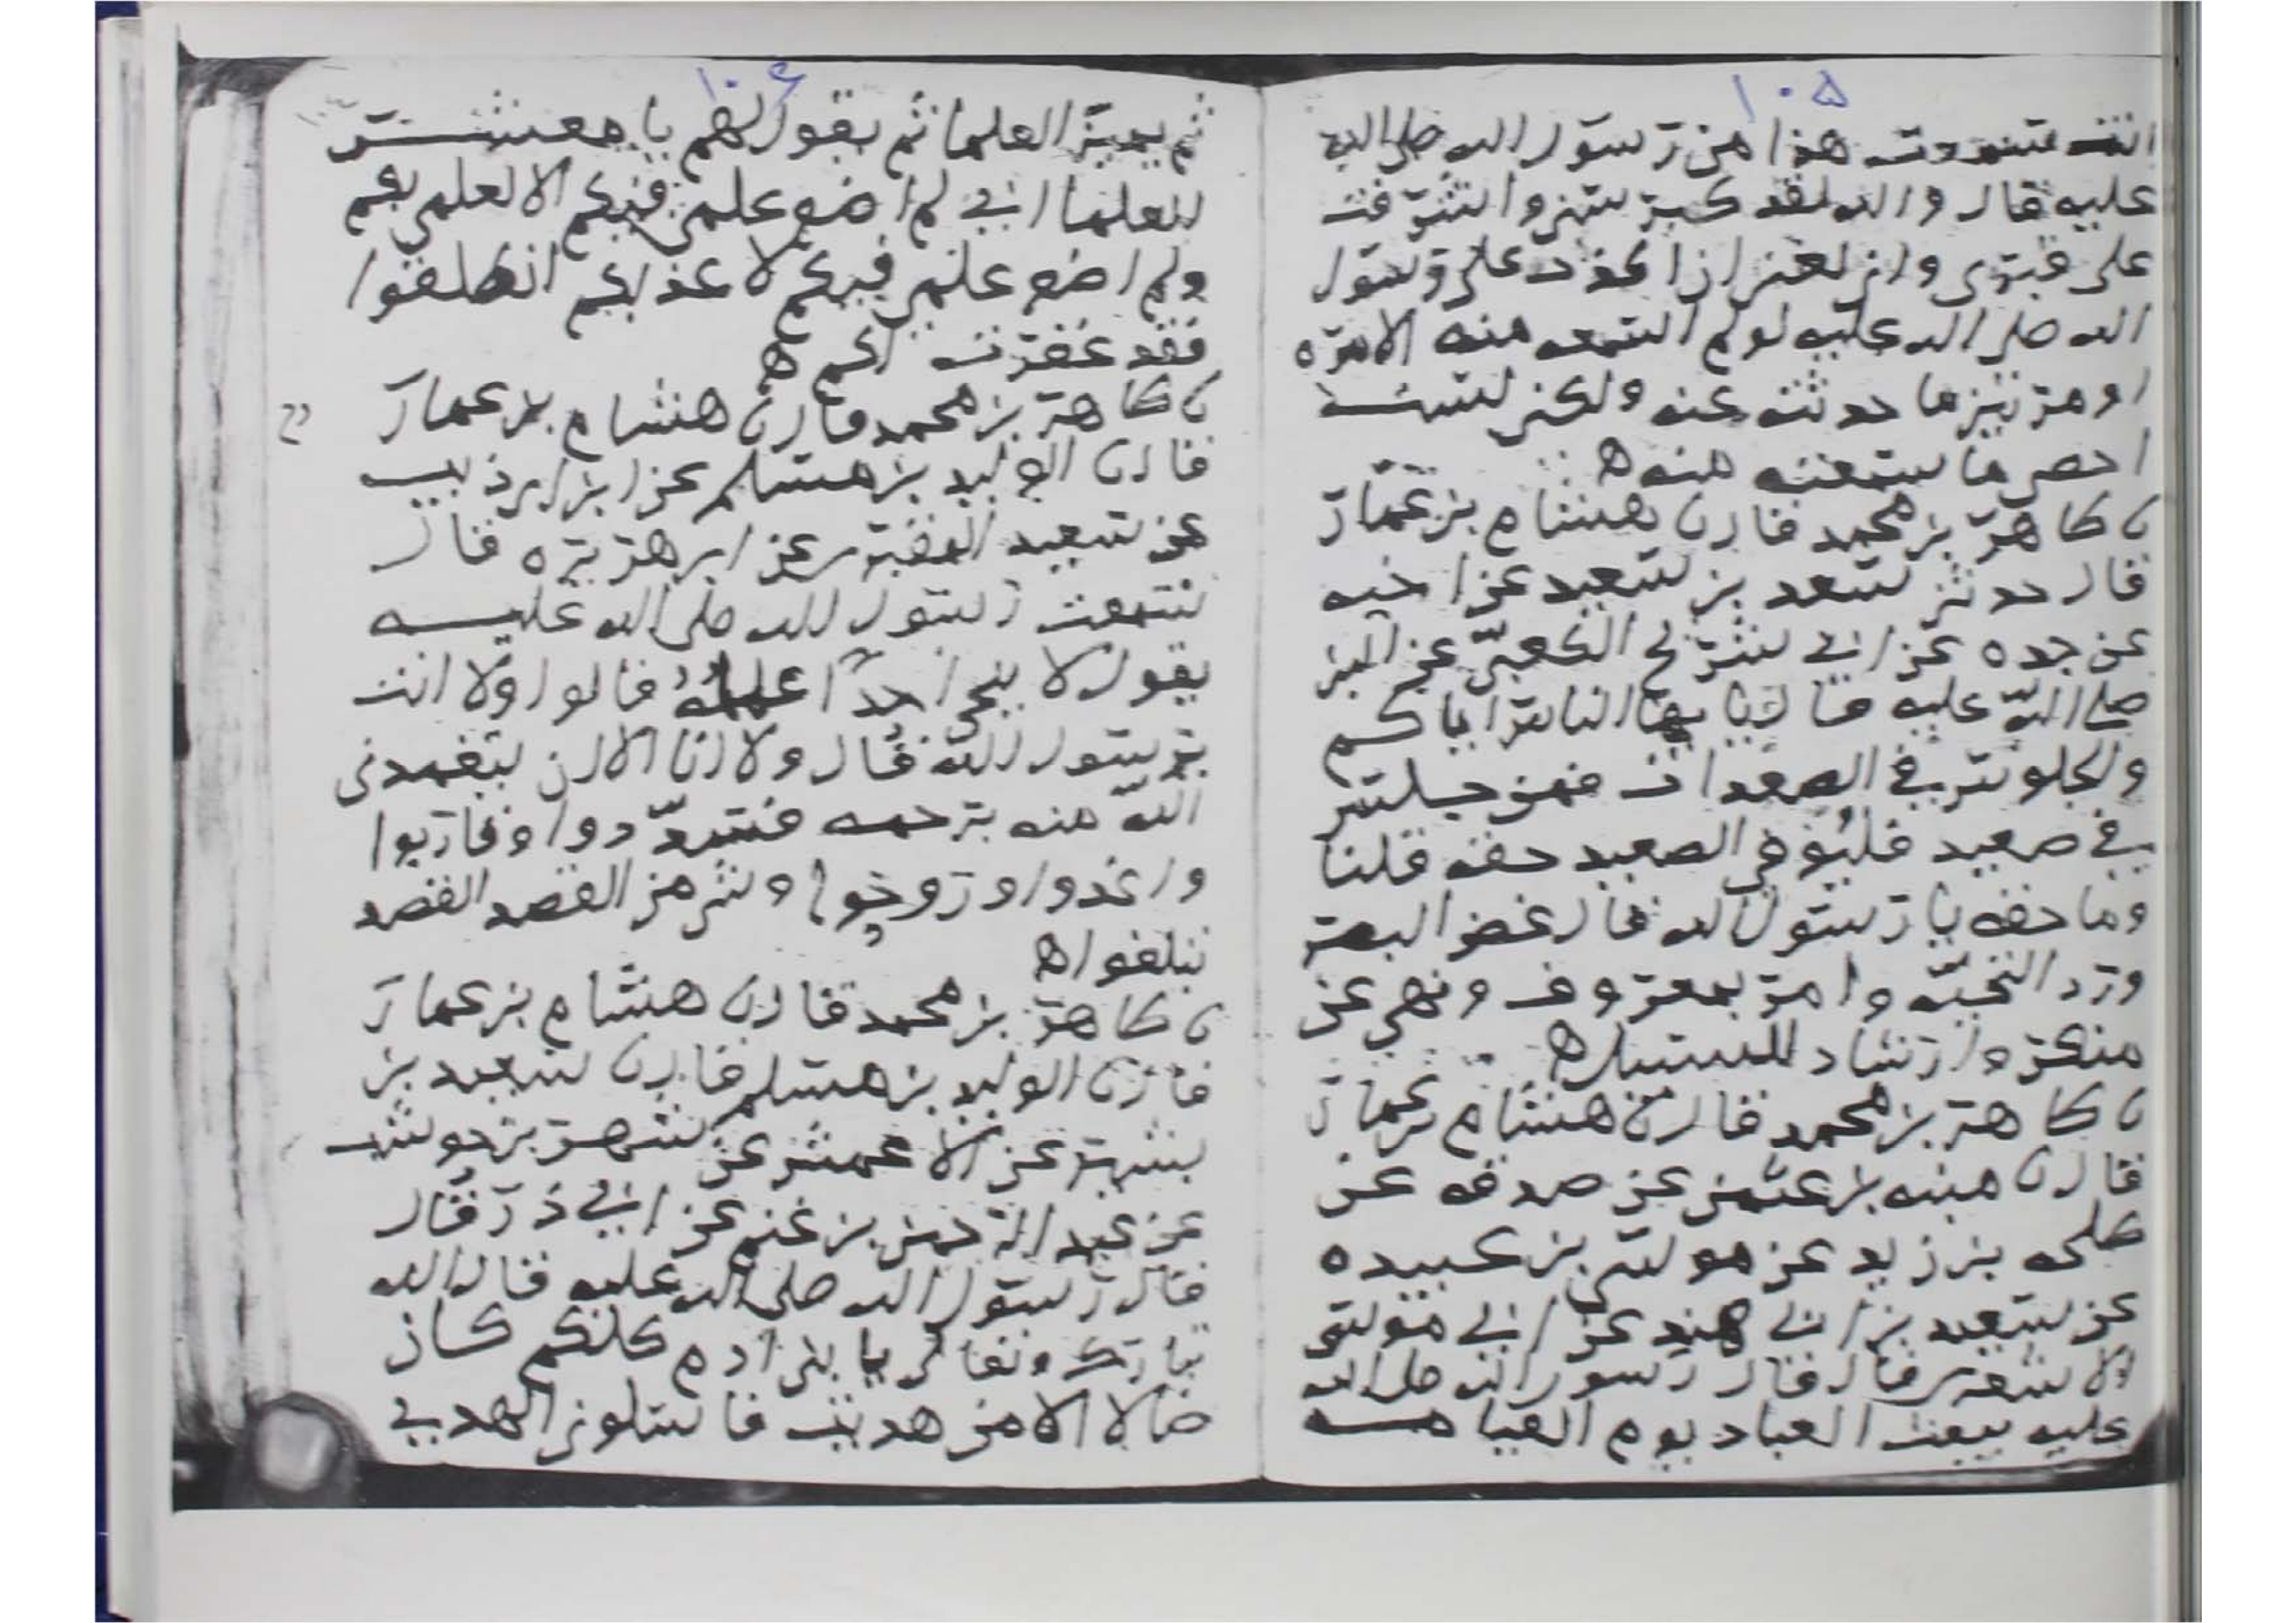 ١٠٥
انت سمعت هذا من رسول الله صلى الله
عليه قال والله لقد كبر سني واشرفت
على قبري واني لغني ان اكذب على رسول
الله صلى الله عليه لو لم اسمعه منه الا مره
او مرتين ما حدثت عنه ولكن لست
احصي ما سمعته منه ه
ن طاهر بن محمد قال ن هشام بن عمار
قال حدثني سعد بن سعيد عن اخيه
عن جده عن ابي شريح الكعبي عن النبي
صلى الله عليه قال يا يها الناس اياكم
والجلوس في الصعدات فمن جلس
في صعيد فليؤدي الصعيد حقه قلنا
وما حقه يا رسول الله قال غض البصر
ورد التحية وامر بمعروف ونهي عن
منكر وارشاد السبيل ه
ن طاهر بن محمد قال ن هشام بن عمار
قال ن منبه بن عثمن عن صدقه عن
طلحه بن زيد عن موسى بن عبيده
عن سعيد بن ابي هند عن ابي موسى
الاشعري قال قال رسول الله صلى الله
عليه يبعث العباد يوم القيامه
١٠۶
ثم يميز العلما ثم يقول لهم يا معشر
العلما اني لم اضع علمي فيكم الا لعلمي بكم
ولم اضع علمي فيكم لاعذبكم انطلقوا
فقد غفرت لكم ه
ن طاهر بن محمد قال ن هشام بن عمار
قال ن الوليد بن مسلم عن ابن ابي ذيب
عن سعيد المقبري عن ابي هريره قال
سمعت رسول الله صلى الله عليه
يقول لا ينجي احدا عمله قالوا ولا انت
يرسول الله قال ولا انا الا ان يتغمدني
الله منه برحمه فسددوا وقاربوا
واغدوا وروحوا وشي من القصد القصد
تبلغوا ه
ن طاهر بن محمد قال ن هشام بن عمار
قال ن الوليد بن مسلم قال ن سعيد بن
بشير عن الاعمش عن شهر بن حوشب
عن عبد الرحمن بن غنم عن ابي ذر قال
قال رسول الله صلى الله عليه قال الله
تبارك وتعالى يا بني ادم كلكم كان
ضالا الا من هديت فاسلوني الهدي